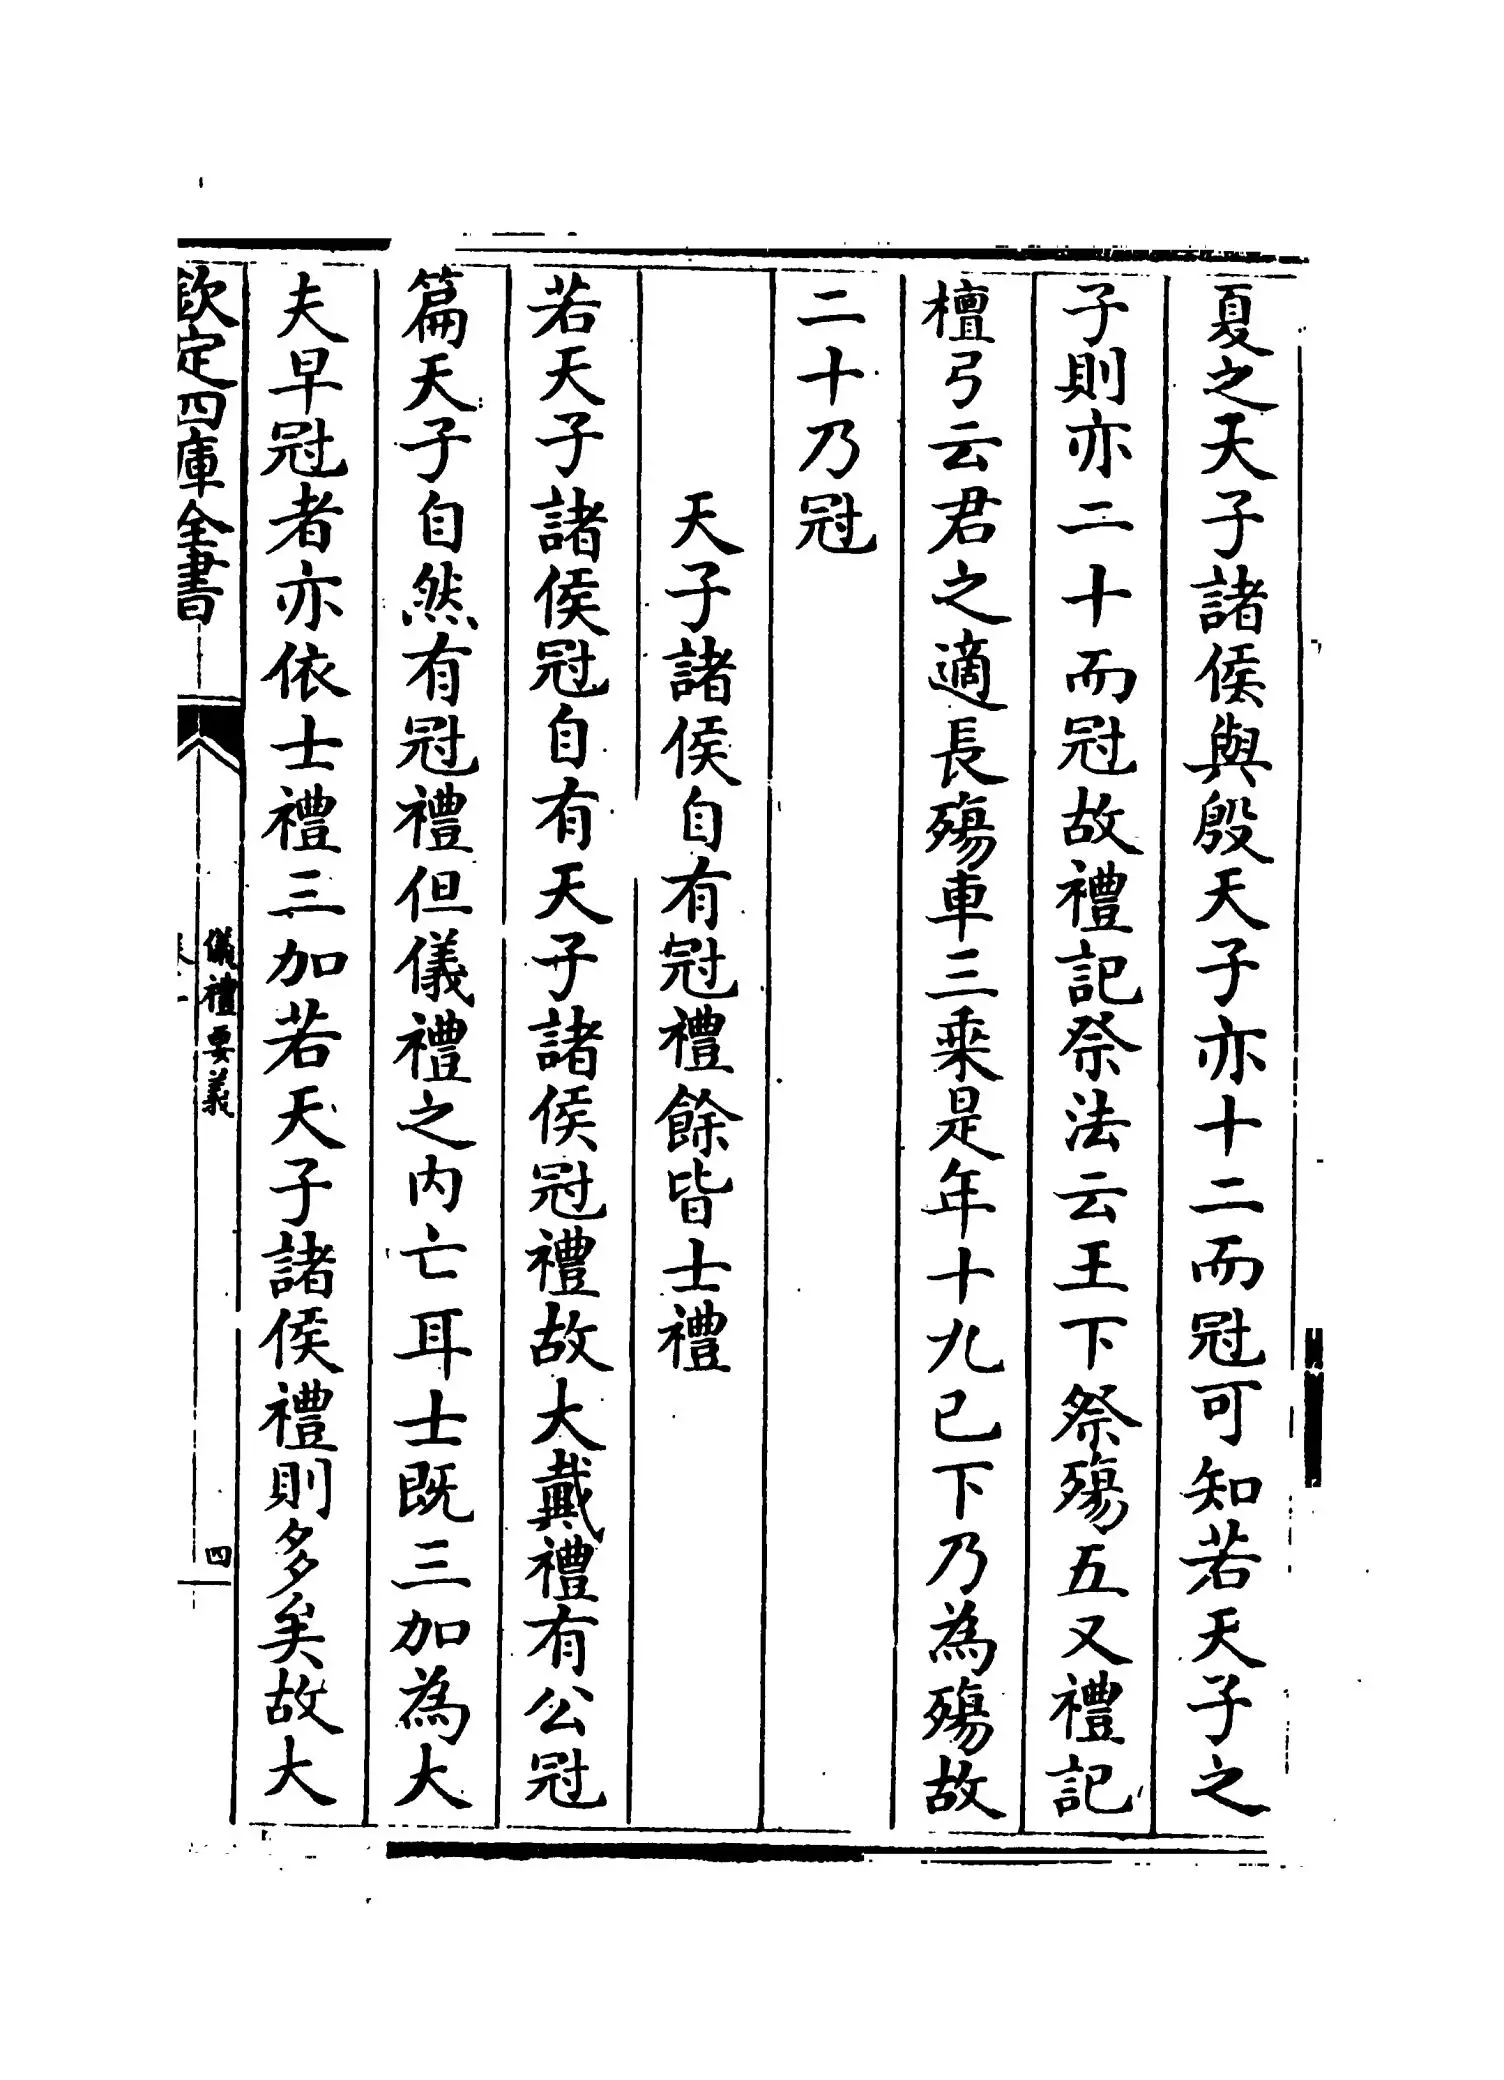 夏之天子諸侯與殷天子亦十二而冠可知若天子之
子則亦二十而冠故禮記祭法云王下祭殤五又禮記
檀弓云君之適長殤車三乘是年十九已下乃為殤故
二十乃冠
天子諸侯自有冠禮餘皆士禮
若天子諸侯冠自有天子諸侯冠禮故大戴禮有公冠
篇天子自然有冠禮但儀禮之内亡耳士既三加為大
夫早冠者亦依士禮三加若天子諸侯禮則多矣故大
欽定四庫全書
儀禮要義
四